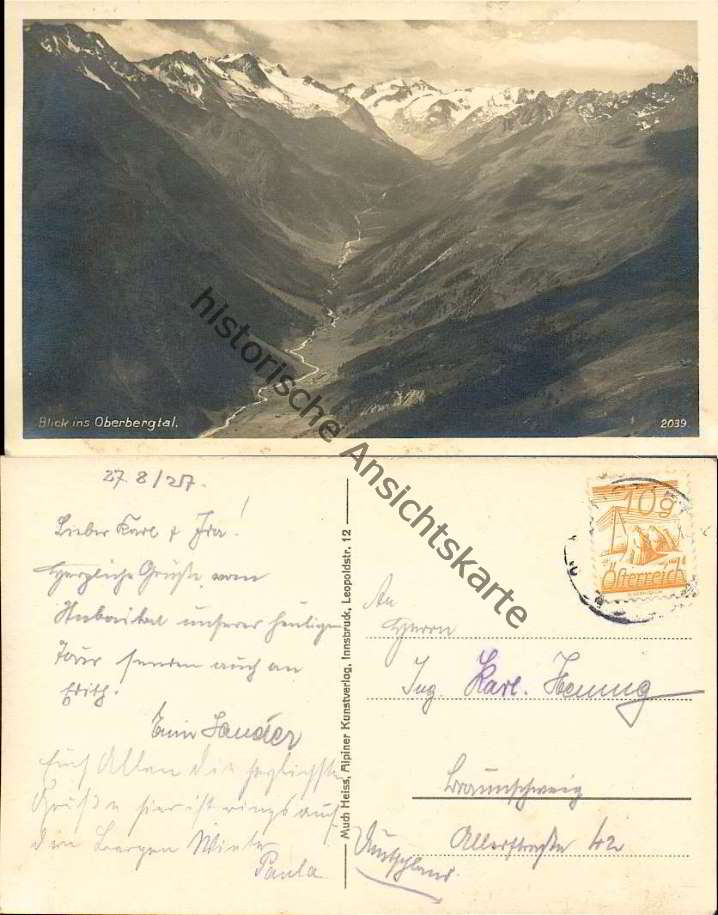 Blick ins Oberbergtal.
2039
historische Ansichtskarte
27. 8/27.
Lieber Karl & Ira!
Herzliche Grüße vom
Stubaital unserer heutigen
Tour senden auch an
Edith.
Sander
Euch Allen die herzlichsten
Grüße hier ist rings auf
den Bergen Winter
Paula
Much Heiss, Alpiner Kunstverlag, Innsbruck, Leopoldstr. 12
10g
Österreich
An
Herrn
Ing. Karl. Hennig
Braunschweig
Allerstraße 42
Deutschland.